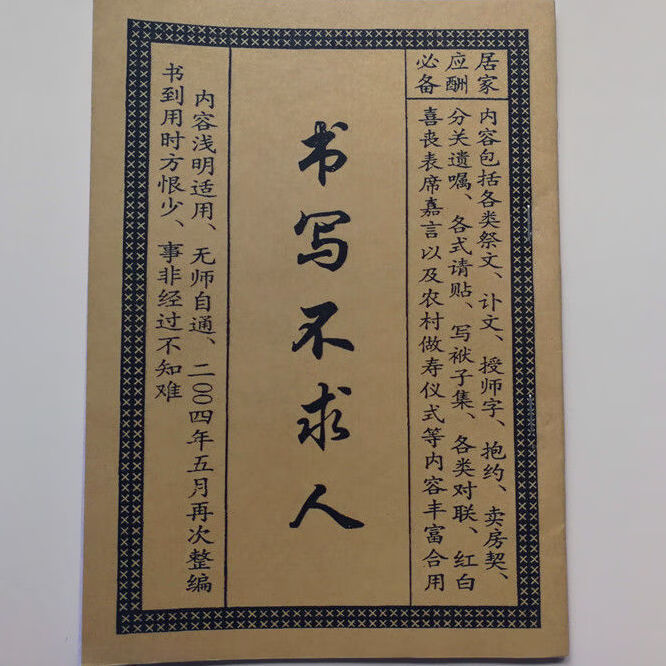 居家
应酬
必备
内容包括各类祭文、讣文、授师字、抱约、卖房契、
分关遗嘱、各式请贴、写袱子集、各类对联、红白
喜丧表席嘉言以及农村做寿仪式等内容丰富合用
书写不求人
内容浅明适用、无师自通、二〇〇四年五月再次整编
书到用时方恨少、事非经过不知难